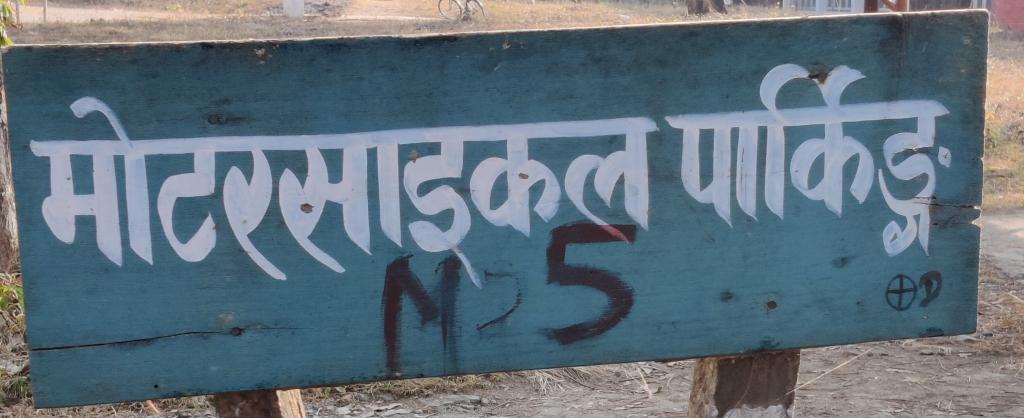 मोटरसाइकल पार्किङ्ग
M 5
⊕D